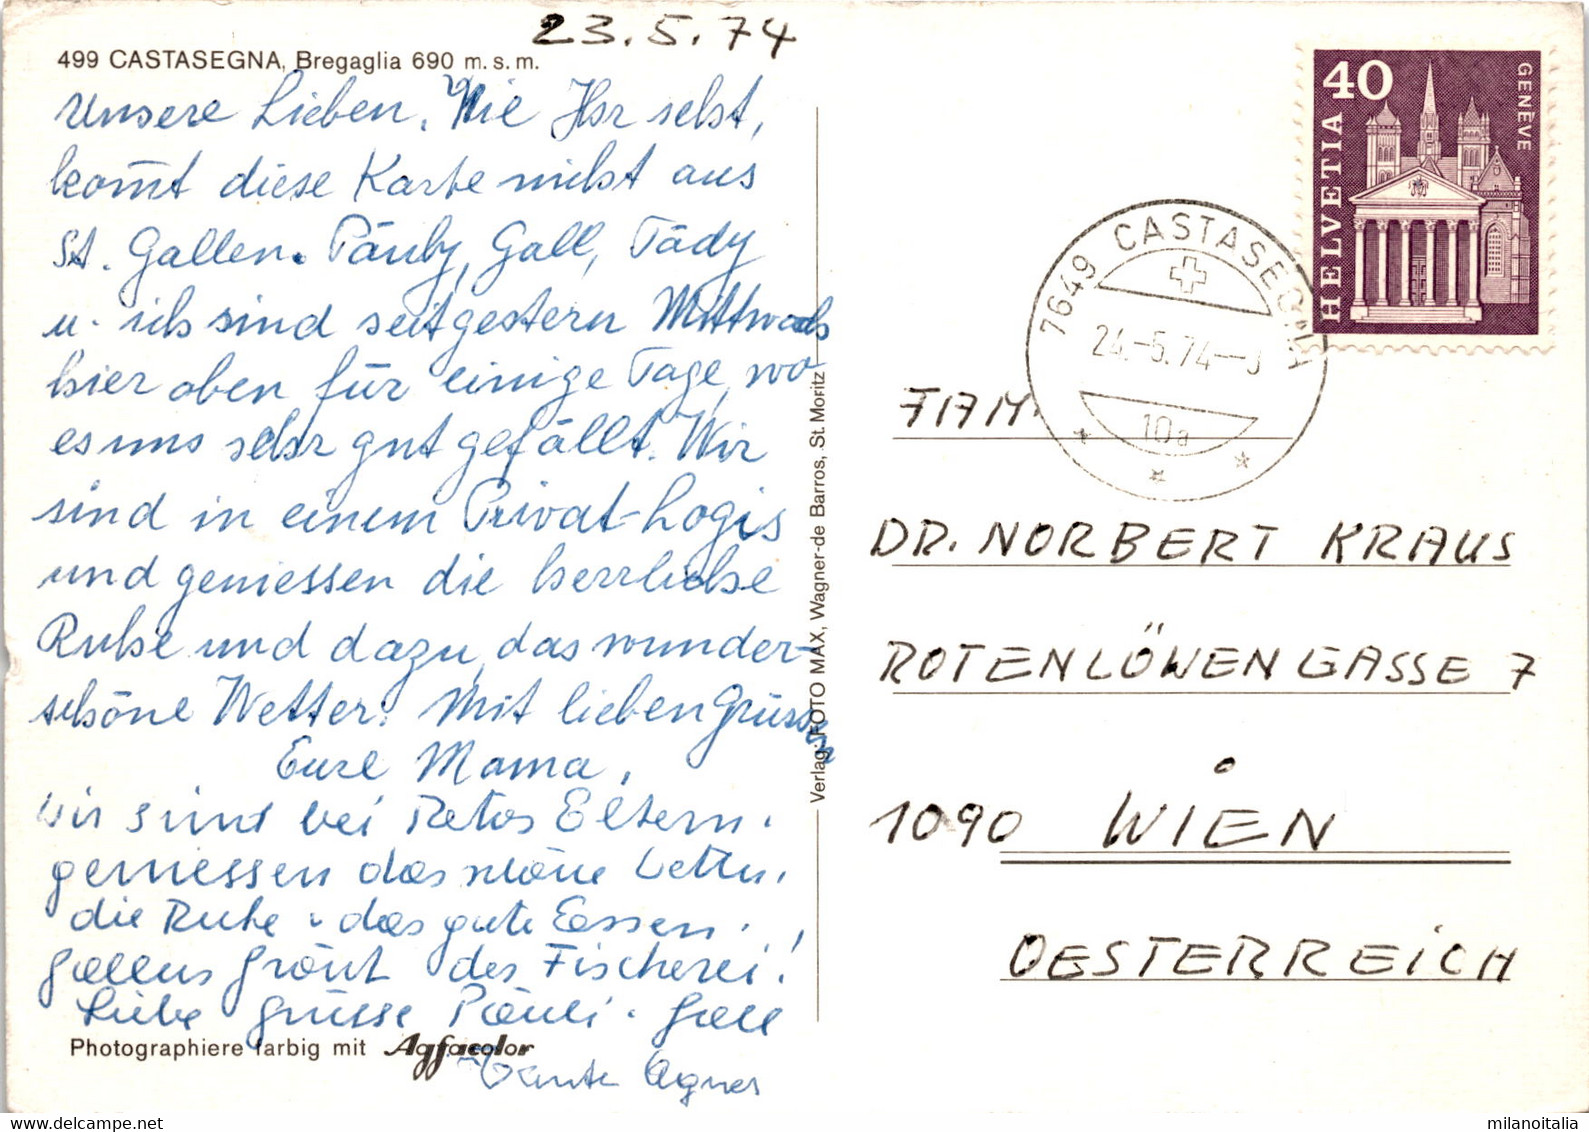 23.5.74
499 CASTASEGNA, Bregaglia 690 m.s.m.
Unsere Lieben. Wie Ihr selbst,
kommt diese Karte nicht aus
St. Gallen. Päuly, Gall, Tädy
u. ich sind seit gestern Mittwoch
hier oben für einige Tage, wo
es uns sehr gut gefällt. Wir
sind in einem Privat-Logis
und geniessen die herrliche
Ruhe und dazu das wunder-
schöne Wetter. Mit lieben Grüssen
Eure Mama,
Wir sind bei Retos Eltern.
geniessen das schöne Wetter,
die Ruhe u. das gute Essen.
Gallus der Fischerei!
Liebe Grüsse Päuli. Gall
Tante Agnes
Photographiere farbig mit Agfacolor
Verlag: FOTO MAX, Wagner-de Barros, St. Moritz
GENÈVE
40
HELVETIA
7649 CASTASEGNA
24.-5.74
10a
FAM.
DR. NORBERT KRAUS
ROTENLÖWENGASSE 7
1090 WIEN
OESTERREICH
milanoitalia